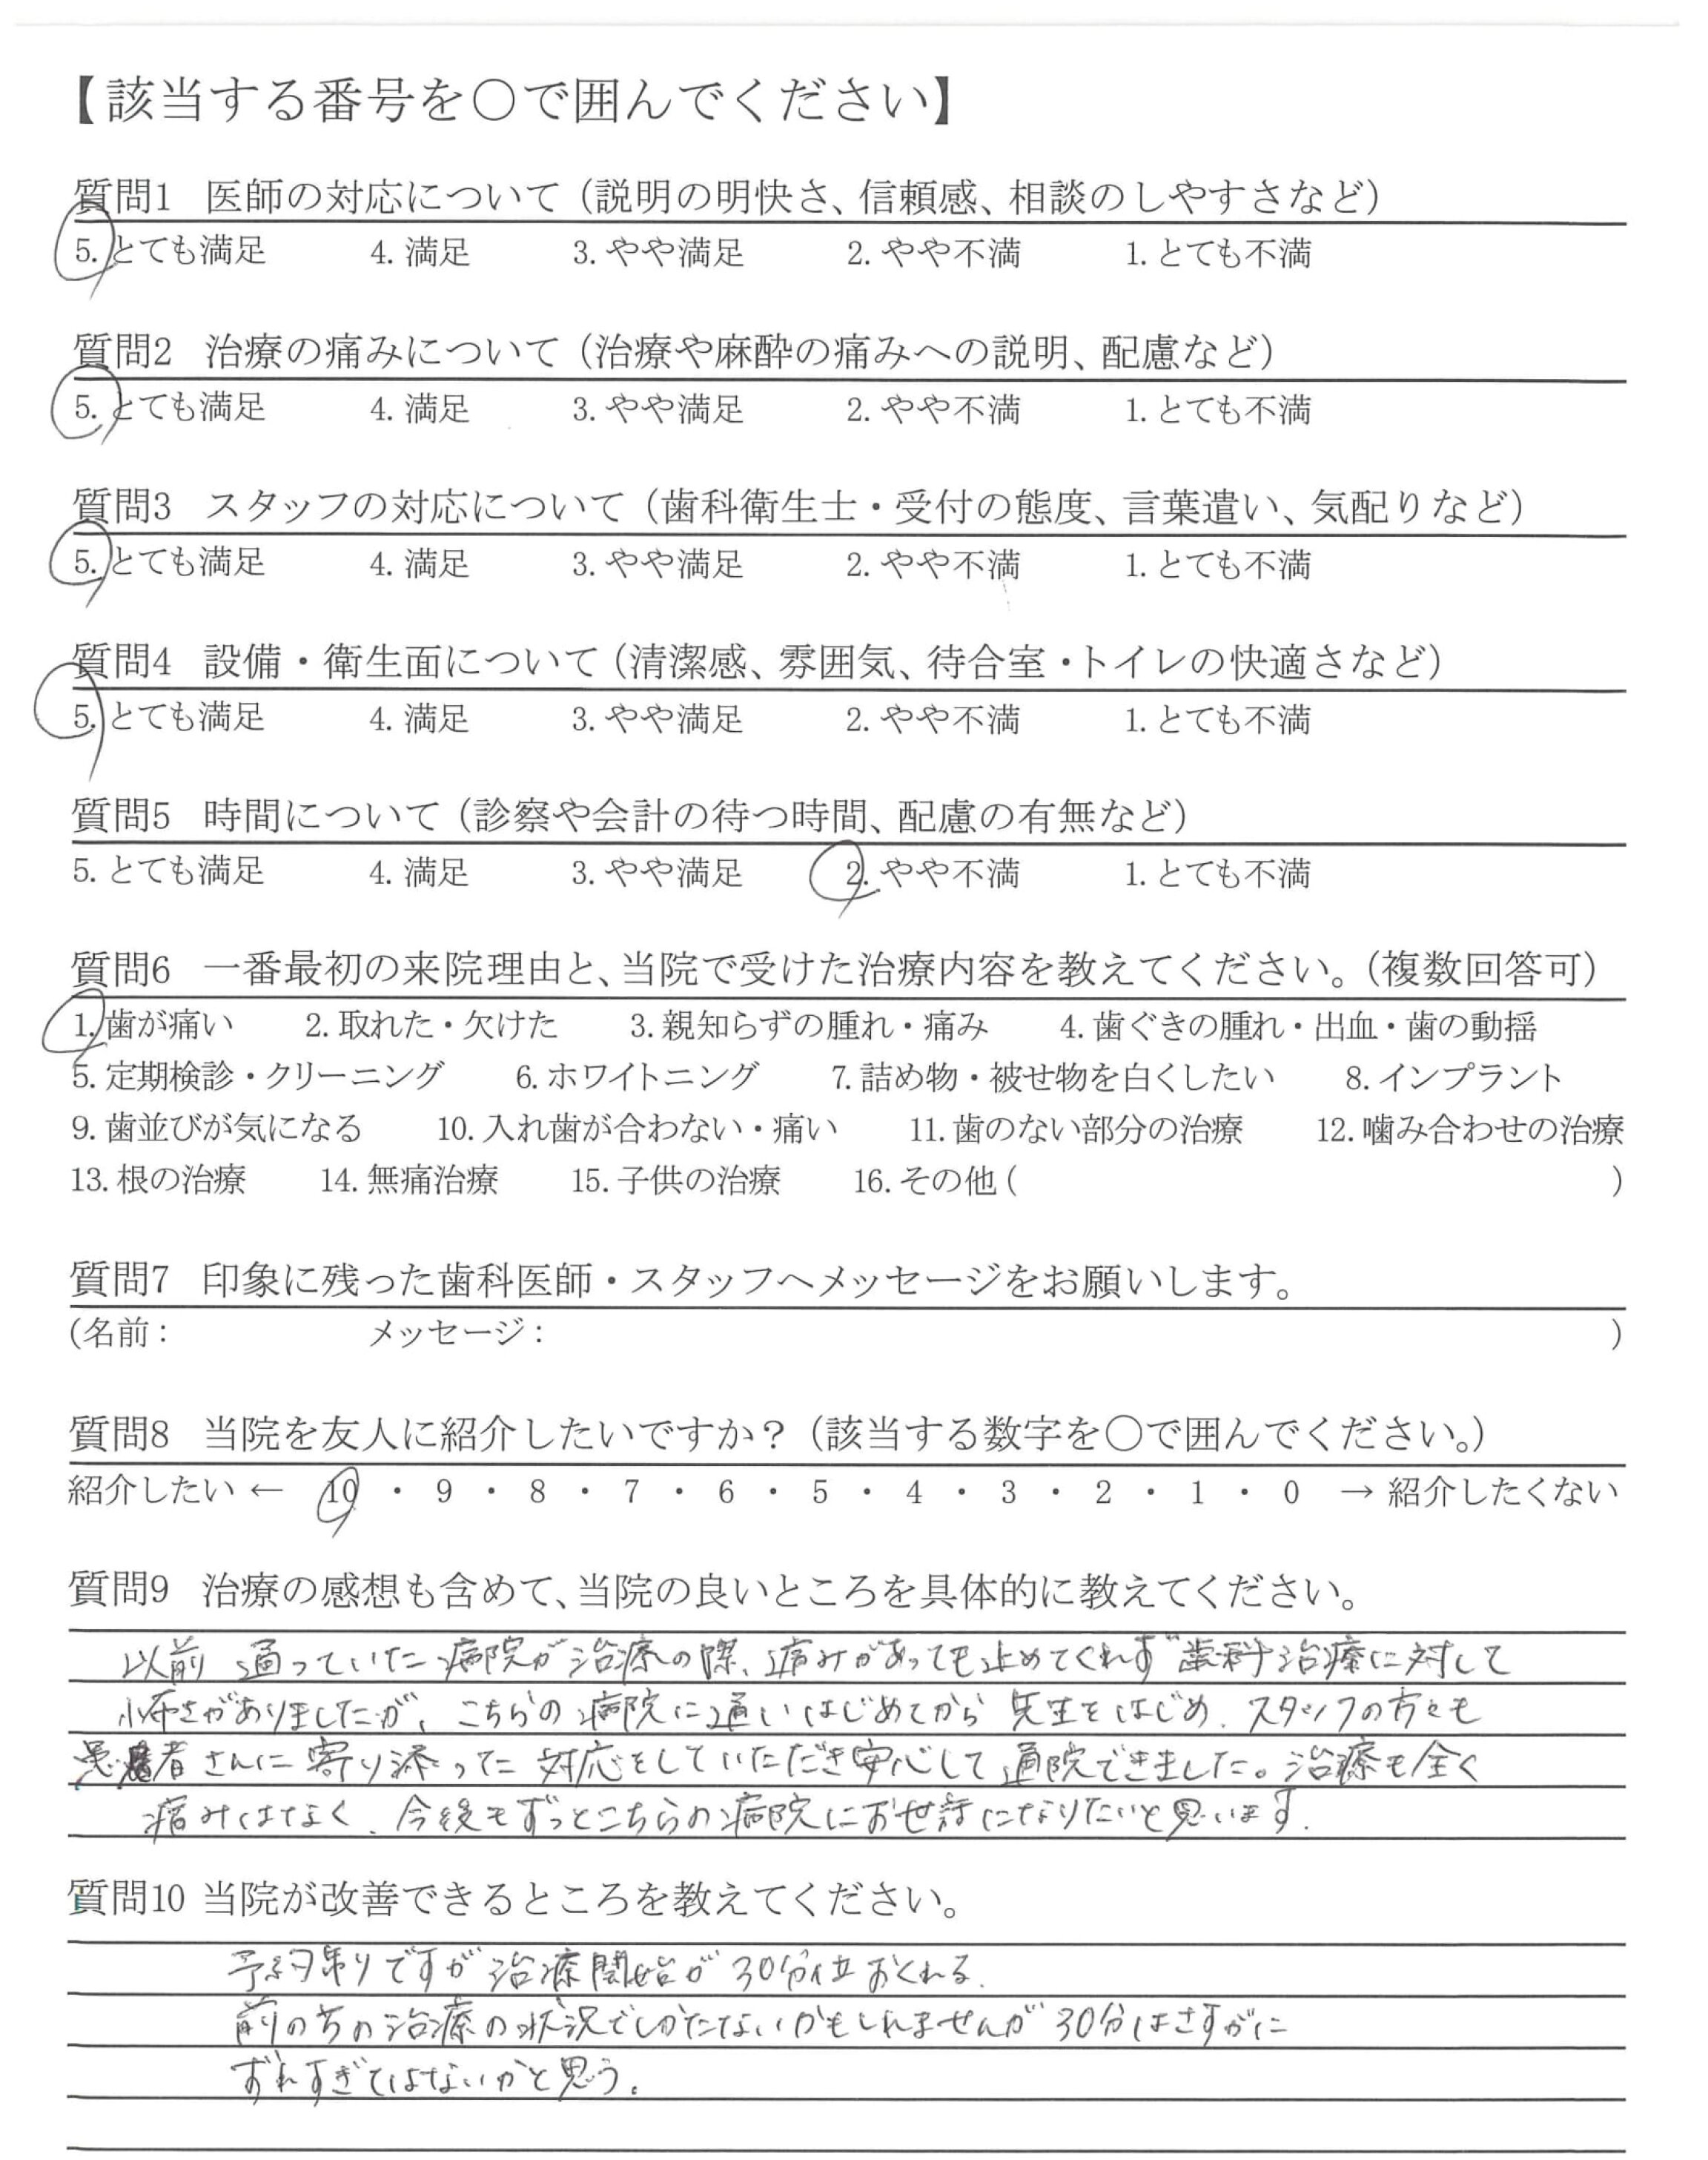 【該当する番号を〇で囲んでください】
質問1 医師の対応について（説明の明快さ、信頼感、相談のしやすさなど）
5. とても満足 4. 満足 3. やや満足 2. やや不満 1. とても不満
質問2 治療の痛みについて（治療や麻酔の痛みへの説明、配慮など）
5. とても満足 4. 満足 3. やや満足 2. やや不満 1. とても不満
質問3 スタッフの対応について（歯科衛生士・受付の態度、言葉遣い、気配りなど）
5. とても満足 4. 満足 3. やや満足 2. やや不満 1. とても不満
質問4 設備・衛生面について（清潔感、雰囲気、待合室・トイレの快適さなど）
5. とても満足 4. 満足 3. やや満足 2. やや不満 1. とても不満
質問5 時間について（診察や会計の待つ時間、配慮の有無など）
5. とても満足 4. 満足 3. やや満足 2. やや不満 1. とても不満
質問6 一番最初の来院理由と、当院で受けた治療内容を教えてください。（複数回答可）
1. 歯が痛い 2. 取れた・欠けた 3. 親知らずの腫れ・痛み 4. 歯ぐきの腫れ・出血・歯の動揺
5. 定期検診・クリーニング 6. ホワイトニング 7. 詰め物・被せ物を白くしたい 8. インプラント
9. 歯並びが気になる 10. 入れ歯が合わない・痛い 11. 歯のない部分の治療 12. 噛み合わせの治療
13. 根の治療 14. 無痛治療 15. 子供の治療 16. その他 ( )
質問7 印象に残った歯科医師・スタッフへメッセージをお願いします。
(名前： メッセージ： )
質問8 当院を友人に紹介したいですか？（該当する数字を〇で囲んでください。）
紹介したい ← 10 ・ 9 ・ 8 ・ 7 ・ 6 ・ 5 ・ 4 ・ 3 ・ 2 ・ 1 ・ 0 → 紹介したくない
質問9 治療の感想も含めて、当院の良いところを具体的に教えてください。
以前 通っていた病院が治療の際、痛みがあっても止めてくれず歯科治療に対して
怖さがありましたが、こちらの病院に通いはじめてから 先生をはじめ、スタッフの方々も
患者さんに寄り添った 対応をしていただき安心して通院できました。治療も全く
痛みはなく、今後もずっとこちらの病院にお世話になりたいと思います.
質問10 当院が改善できるところを教えてください。
予約制りですが治療開始が30分位おくれる.
前の方の治療の状況でしかたないかもしれませんが30分はさすがに
ずれすぎではないかと思う。